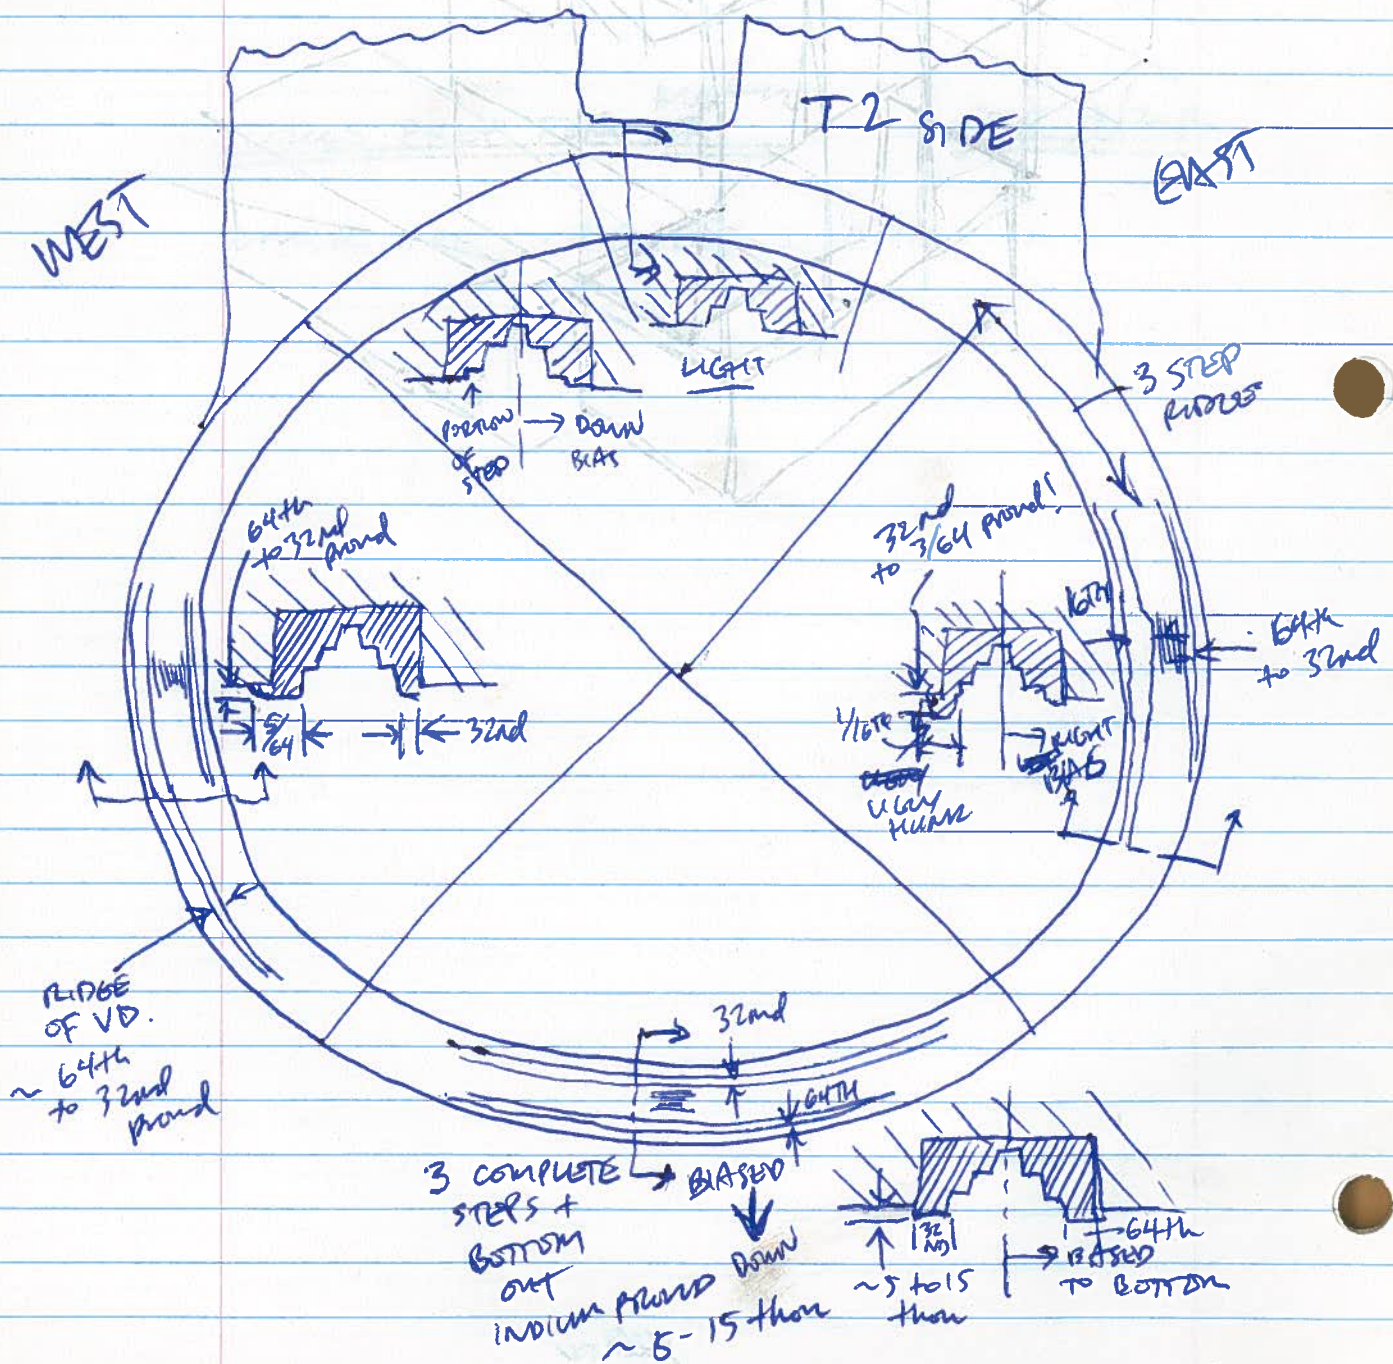 T2 SIDE
WEST
EAST
LIGHT
3 STEP
RIDGE
PORTION
OF
STEP
DOWN
BIAS
64th
to 32nd
proud
32nd
to 3/64 proud!
16TH
64th
to 32nd
5/64
32nd
1/16TH
RIGHT
BIAS
UGLY
HUNK
RIDGE
OF VD.
~ 64th
to 32nd
proud
32nd
64TH
3 COMPLETE
STEPS +
BOTTOM
OUT
BIASED
DOWN
INDIUM PROUD
~ 5-15 thou
32
ND
64th
~5 to 15
thou
BIASED
TO BOTTOM